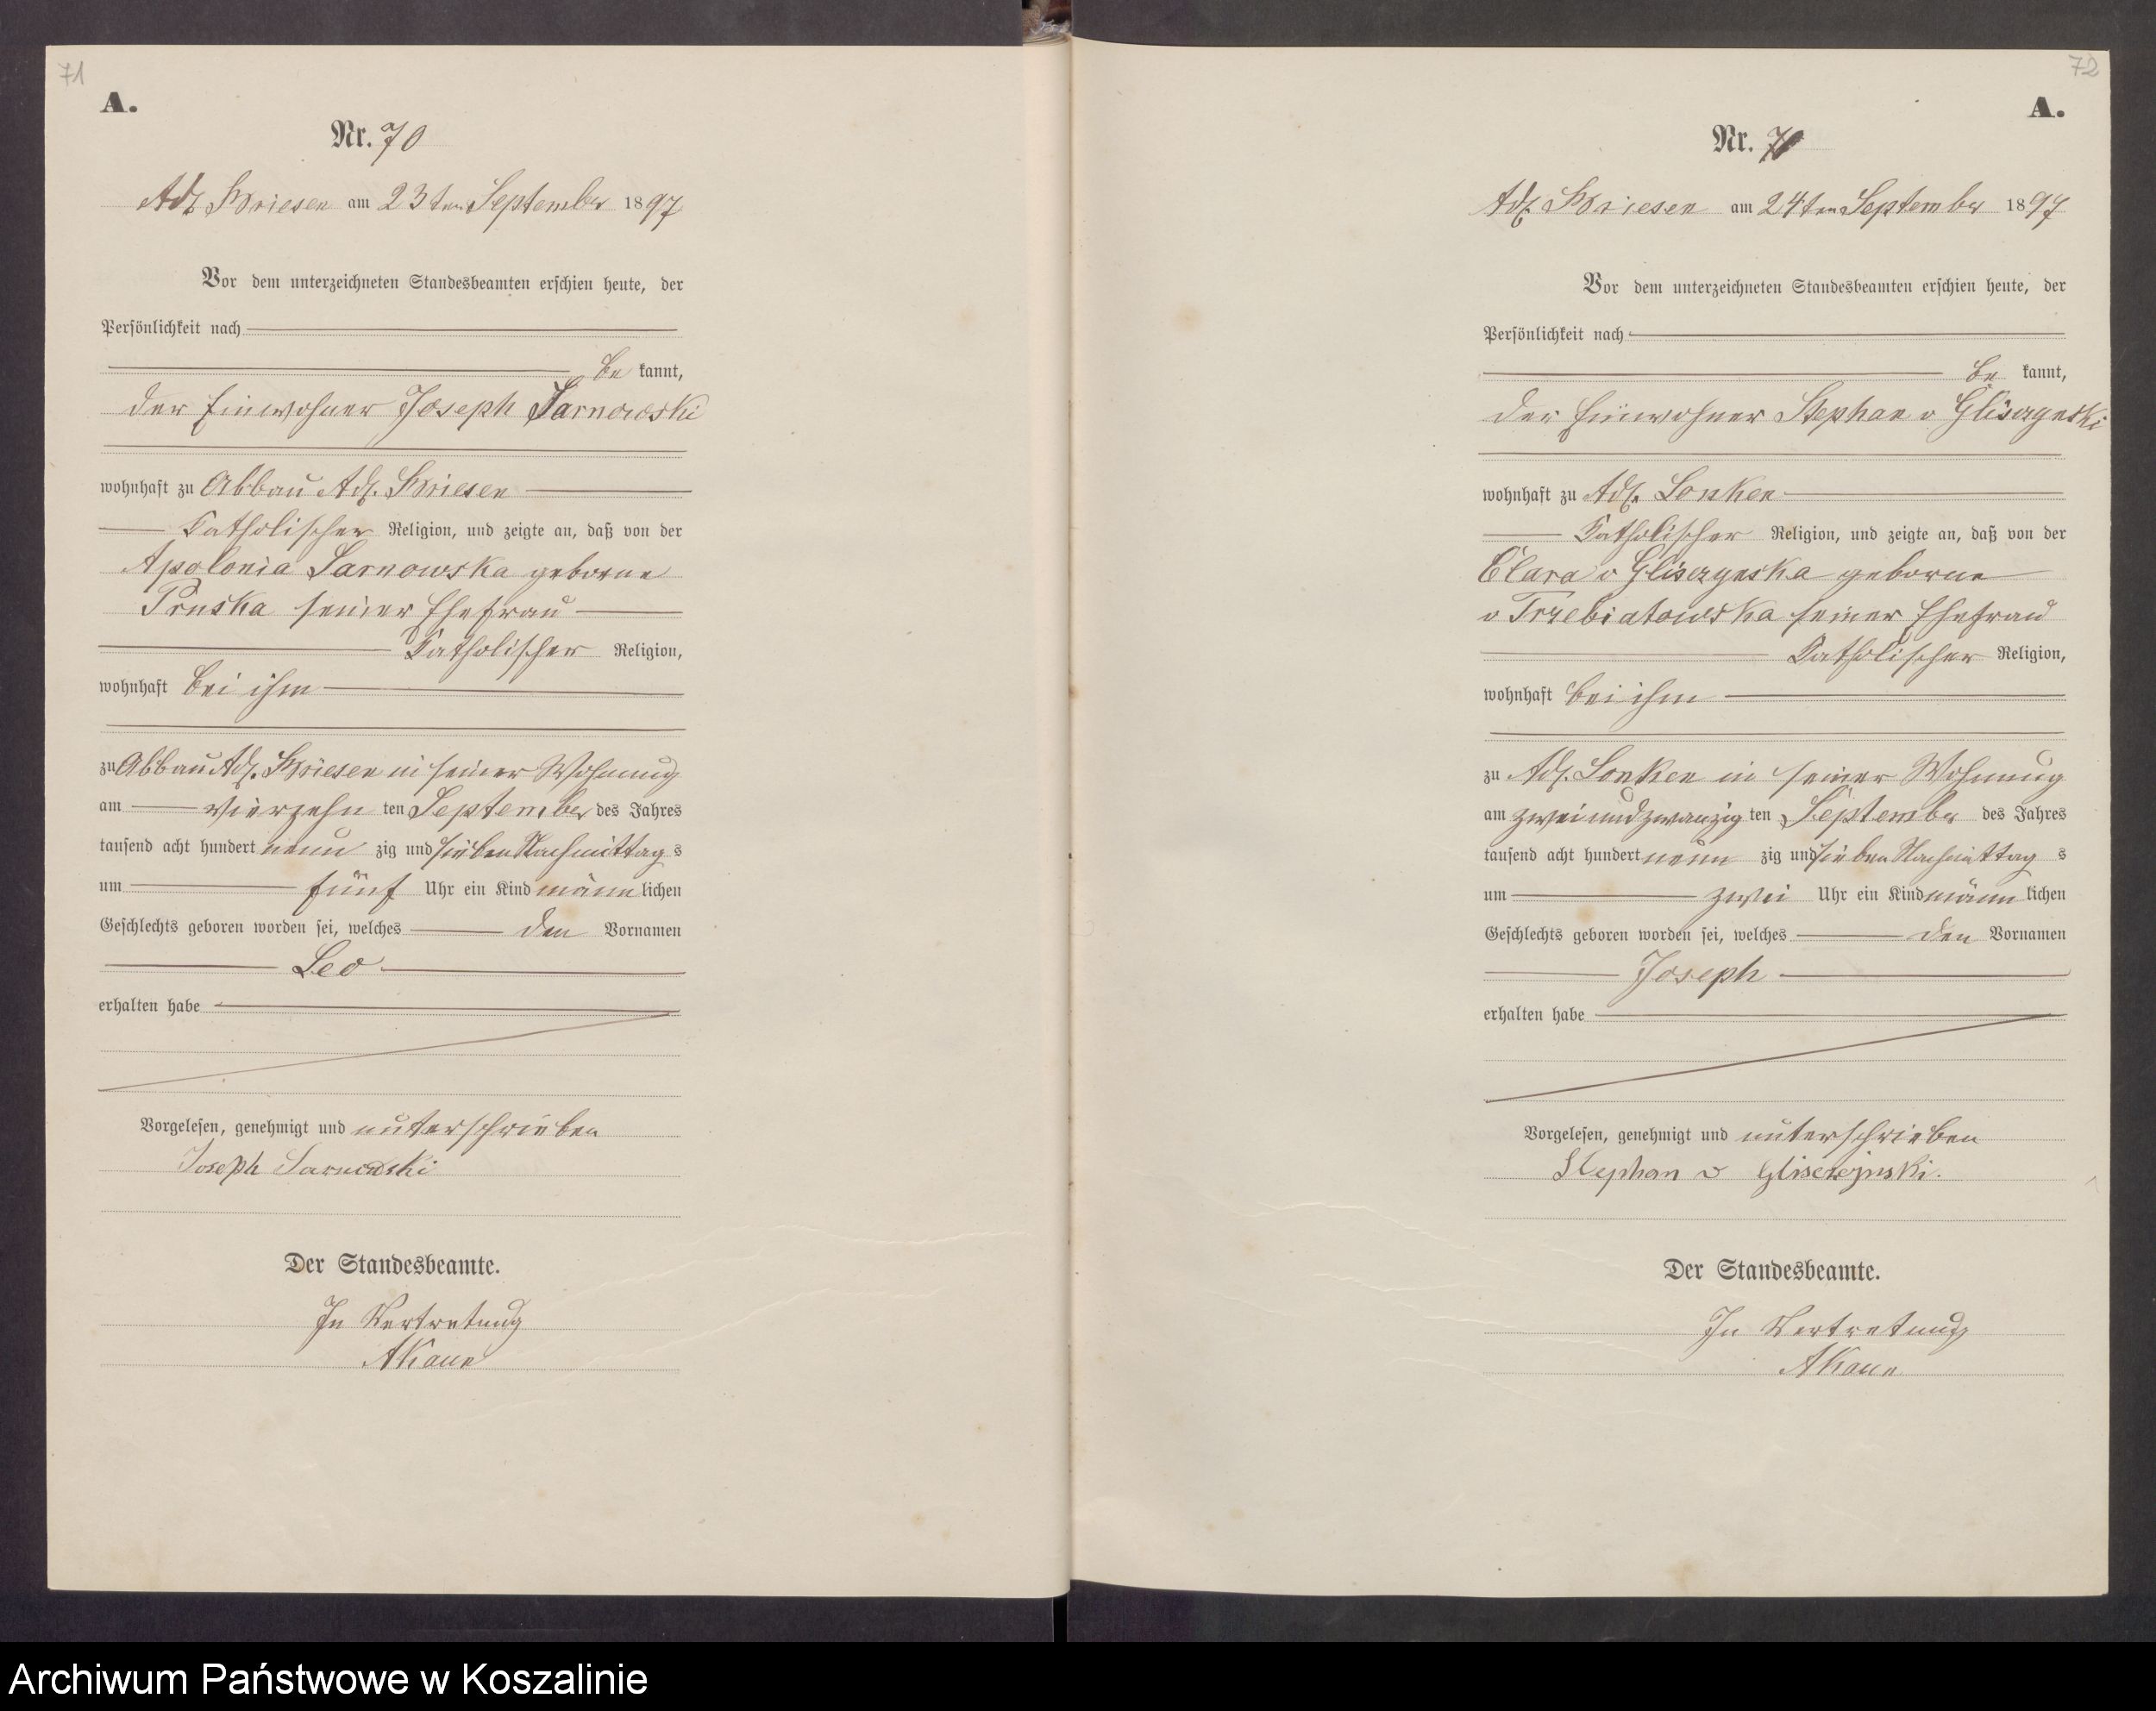 71
A.
Nr. 70
Adl Briesen am 23ten September 1897
Vor dem unterzeichneten Standesbeamten erschien heute, der
Persönlichkeit nach
be kannt,
der Einwohner Joseph Sarnowski
wohnhaft zu Abbau Adl. Briesen
Katholischer Religion, und zeigte an, daß von der
Apolonia Sarnowska geborne
Pruska seiner Ehefrau
Katholischer Religion,
wohnhaft bei ihm
zu Abbau Adl. Briesen in seiner Wohnung
am vierzehn ten September des Jahres
tausend acht hundert neun zig und sieben Nachmittag s
um fünf Uhr ein Kind männ lichen
Geschlechts geboren worden sei, welches den Vornamen
Leo
erhalten habe
Vorgelesen, genehmigt und unterschrieben
Joseph Sarnowski
Der Standesbeamte.
In Vertretung
72
A.
Nr. 71
Adl. Briesen am 24ten September 1897
Vor dem unterzeichneten Standesbeamten erschien heute, der
Persönlichkeit nach
be kannt,
der Einwohner Stephan v Gliszynski
wohnhaft zu Adl. Lonken
Katholischer Religion, und zeigte an, daß von der
Clara v Gliszynska geborne
v Trzebiatowska seiner Ehefrau
Katholischer Religion,
wohnhaft bei ihm
zu Adl. Lonken in seiner Wohnung
am zweiundzwanzig ten September des Jahres
tausend acht hundert neun zig und sieben Nachmittag s
um zwei Uhr ein Kind männ lichen
Geschlechts geboren worden sei, welches den Vornamen
Joseph
erhalten habe
Vorgelesen, genehmigt und unterschrieben
Stephan v
Der Standesbeamte.
In Vertretung
Archiwum Państwowe w Koszalinie